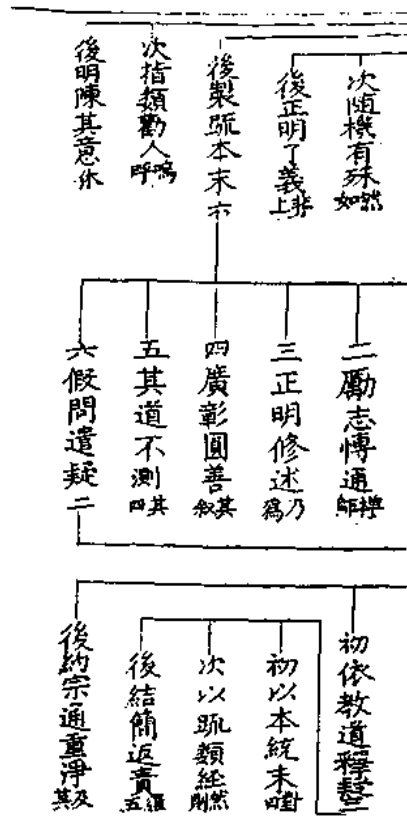 次隨機有殊 然如
後正明了義 非上
後製䟽本末 六
次指類勸人 嗚呼
後明陳其意 休
二勵志愽通 禅師
三正明修述 乃爲
四廣彰圓善 其叙
五其道不測 其四
六假問遣疑 二
初依教道釋
初以本統末 對四
次以䟽類經 然則
後結簡返責 五
後約宗通重淨 及其